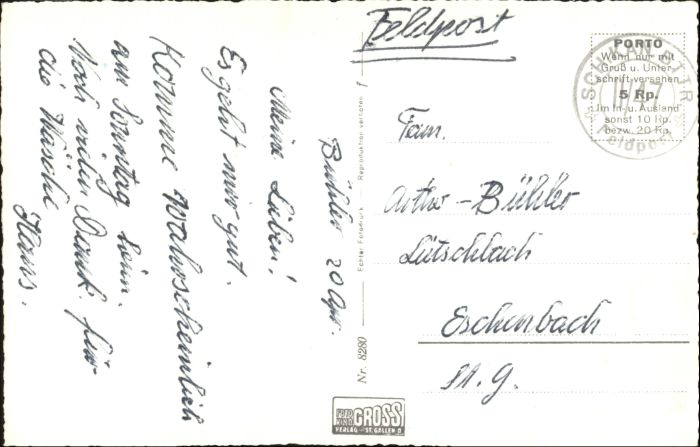 Bühler 20 Apr.
Meine Lieben!
Es geht mir gut.
Komme Wahrscheinlich
am Sonntag heim.
Noch vielen Dank für
die Wäsche
Hans.
Feldpost
PORTO
Wenn nur mit
Gruß u. Unter-
schrift versehen
5 Rp.
Im In- u. Ausland
sonst 10 Rp.
bezw. 20 Rp.
Feldpost
Fam.
Arthur - Bühler
Lütschbach
Eschenbach
St. G.
Echter Fotodruck — Reproduktion verboten
Nr. 8280
FOTO
GROSS
VERLAG ST. GALLEN